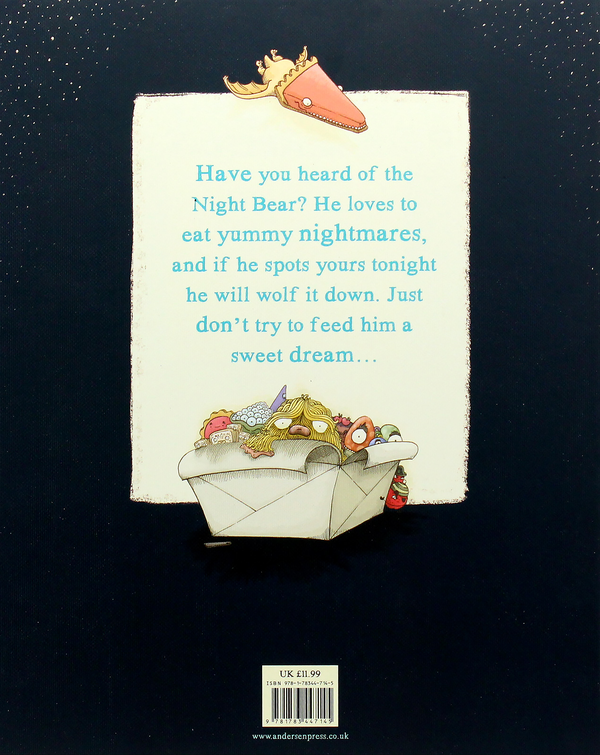 Have you heard of the
Night Bear? He loves to
eat yummy nightmares,
and if he spots yours tonight
he will wolf it down. Just
don't try to feed him a
sweet dream...
UK £11.99
ISBN 978-1-78344-714-5
9 781783 447145
www.andersenpress.co.uk